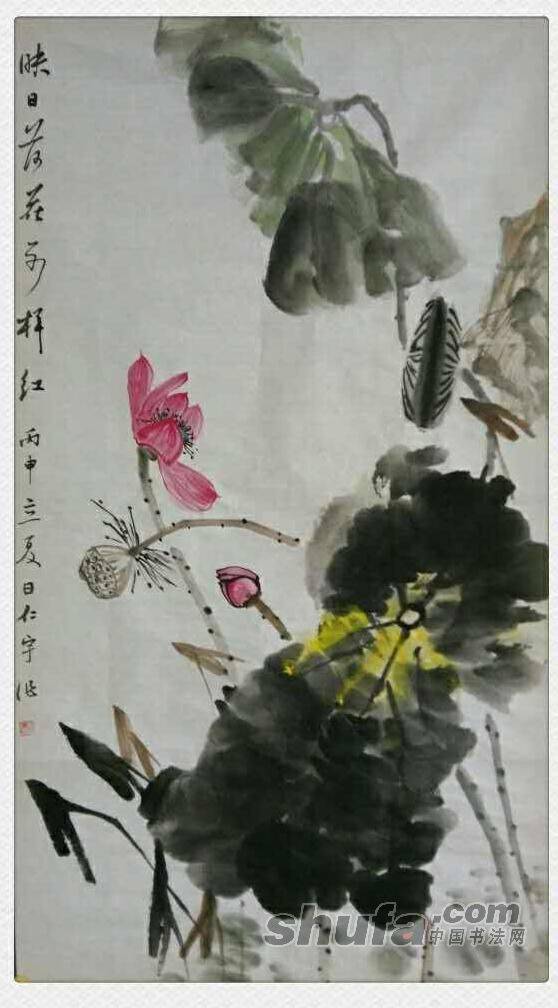 映日荷花别样红 丙申立夏日仁宇作
shufa.com
中国书法网